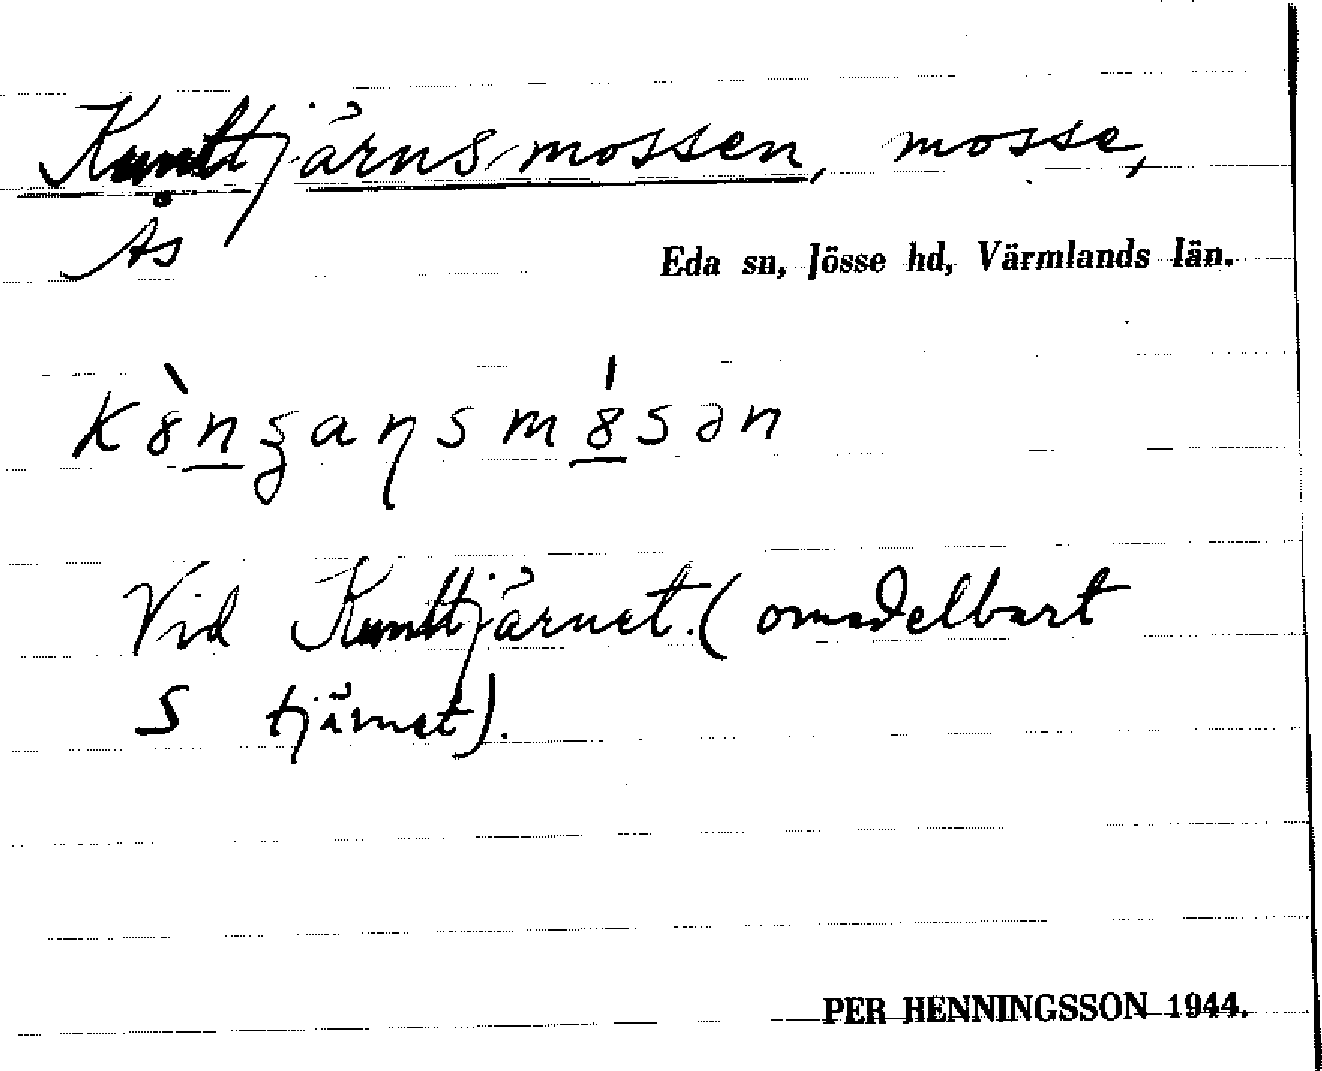 Kunttjärnsmossen, mosse,
Ås
Eda sn, Jösse hd, Värmlands län.
k8̀n̲ʒaɳsm8̲́sən
Vid Kunttjärnet. (omedelbart
S tjärnet).
PER HENNINGSSON 1944.